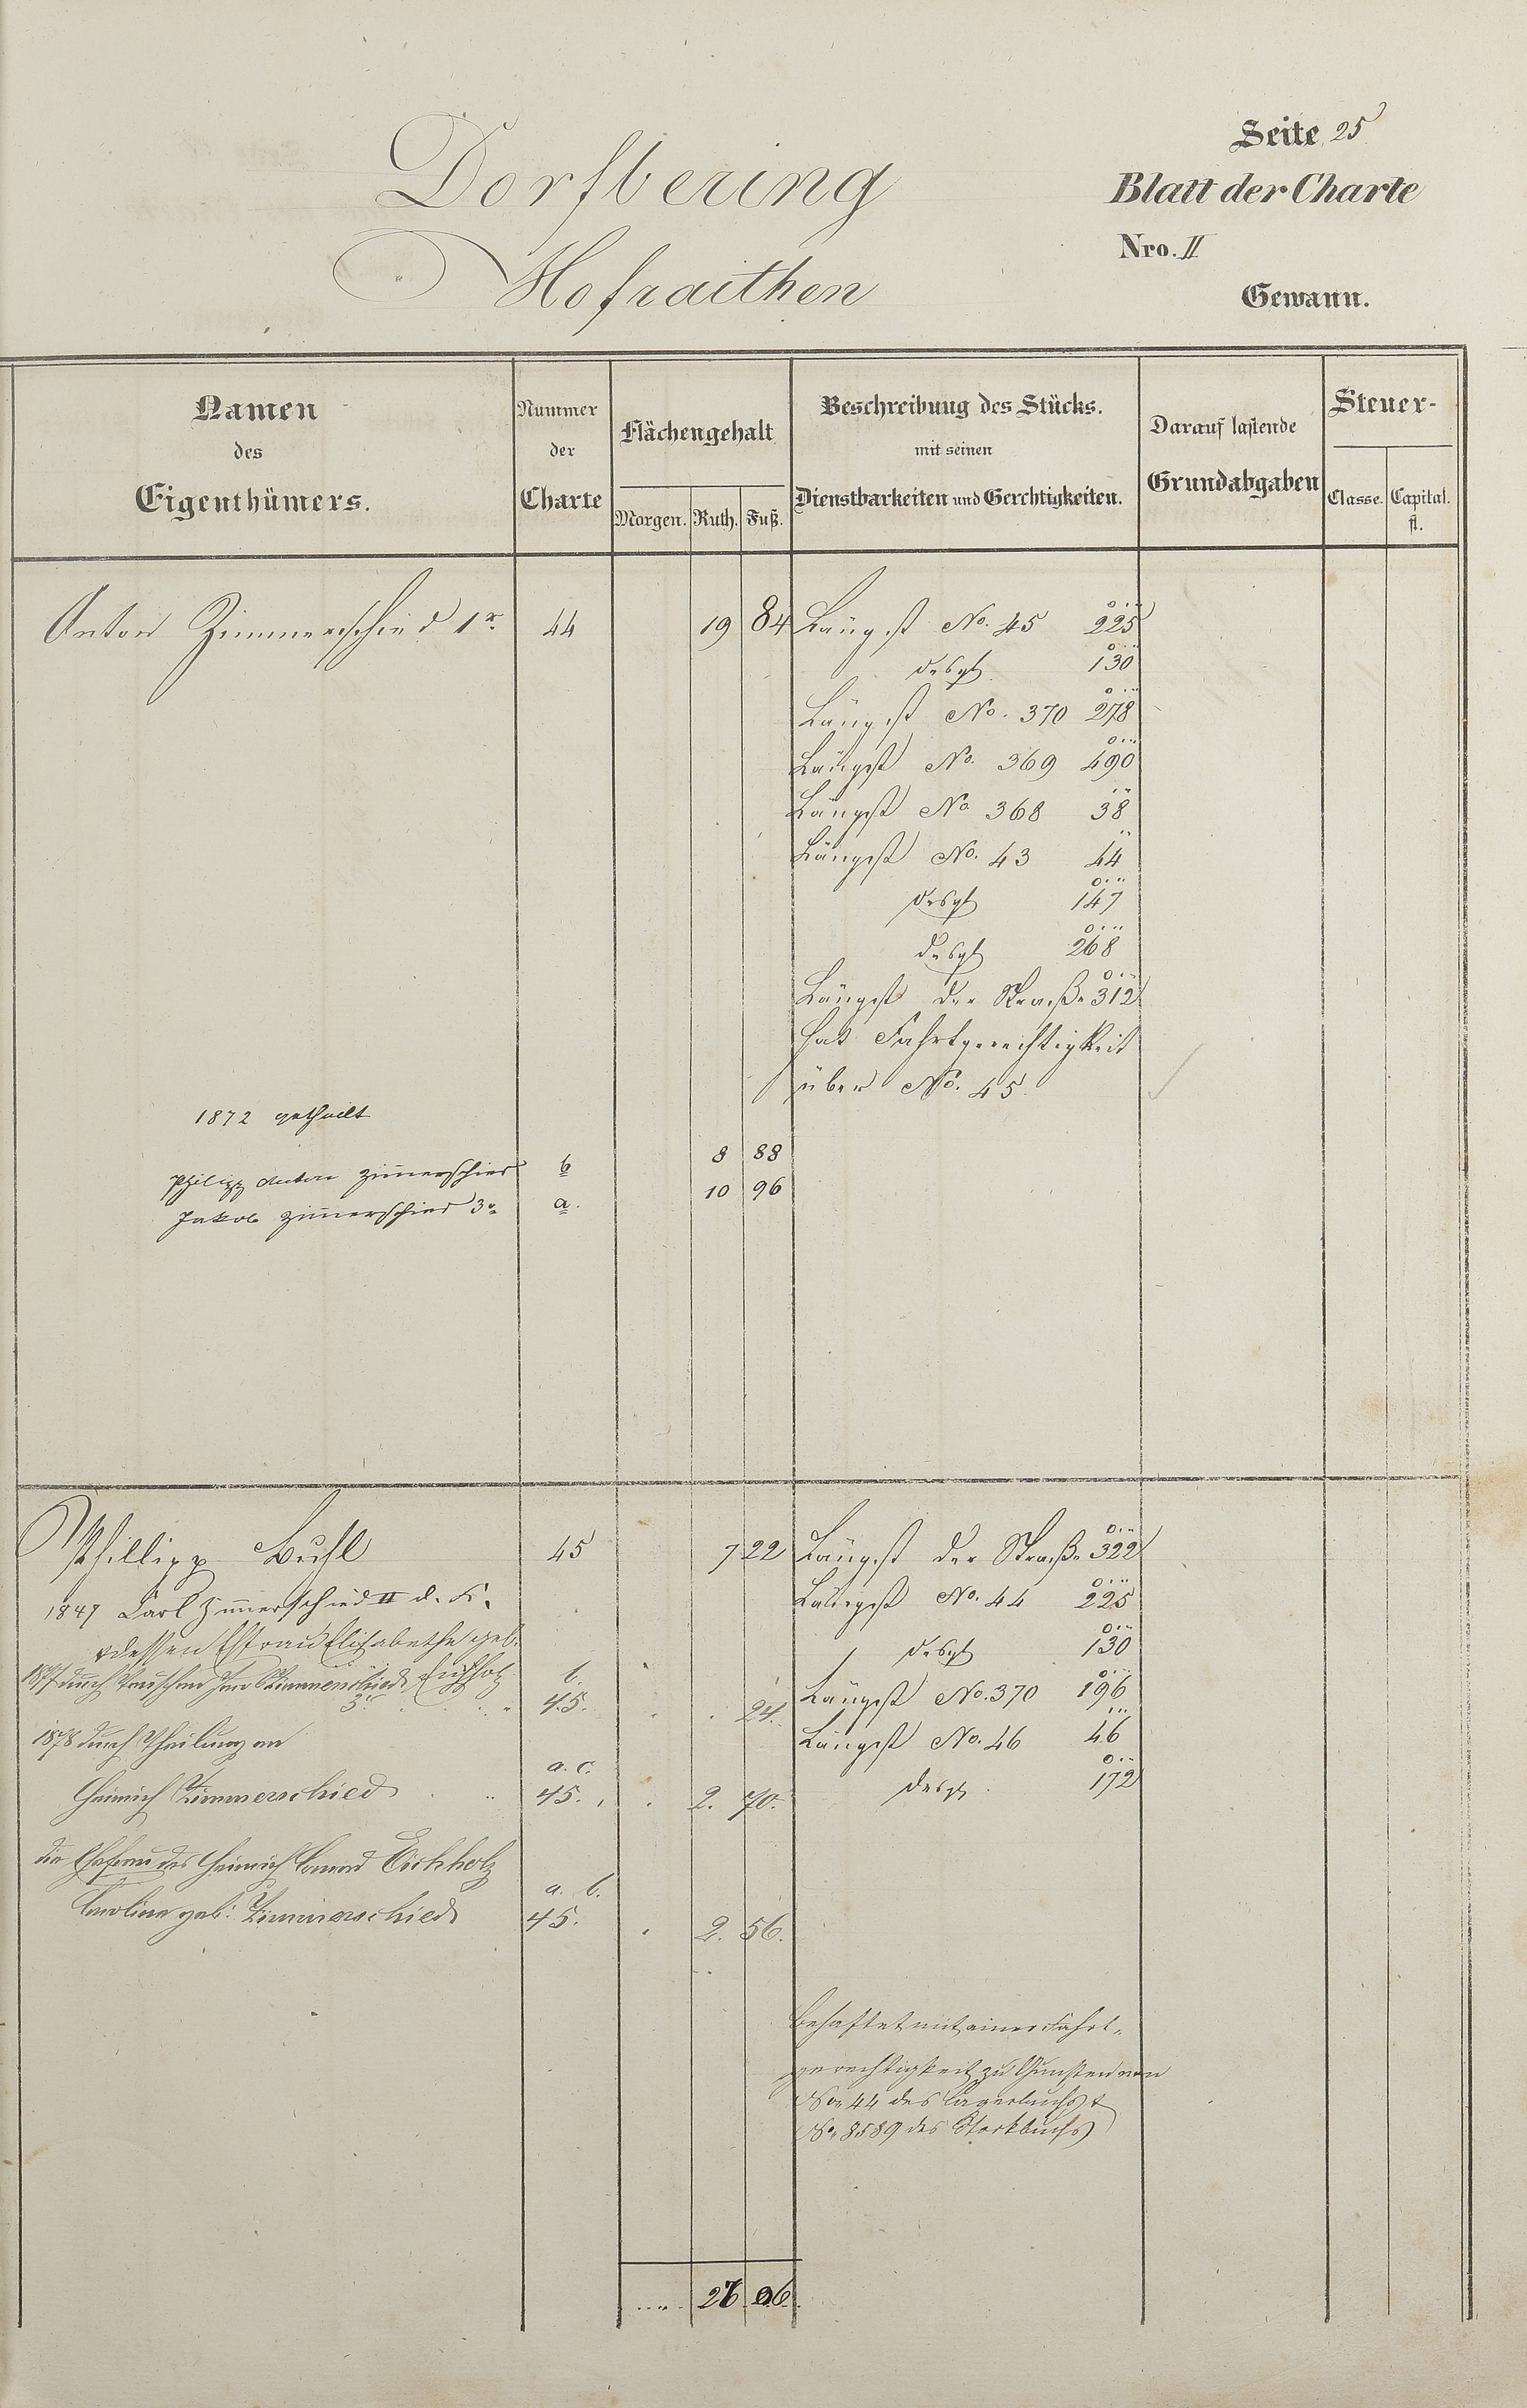 Seite 25
Dorfbering
Blatt der Charte
Nro. II
Hofraithen
Gewann.
Namen
des
Eigenthümers.
Nummer
der
Charte
Flächengehalt
Morgen. Ruth. Fuß.
Beschreibung des Stücks.
mit seinen
Dienstbarkeiten und Gerechtigkeiten.
Darauf lastende
Grundabgaben
Steuer-
Classe. Capital.
fl.
Anton Zimmerschied 1r. 44 19 84 Längst No. 45 225
desgl. 130
Längst No. 370 278
Längst No. 369 490
Längst No 368 38
Längst No. 43 44
desgl 147
desgl 268
Längst der Straße 312
hat Fahrtgerechtigkeit
über No. 45.
1872 getheilt
Philipp Anton Zimerschied b 8 88
Jakob Zimerschied 3r a. 10 96
Phillipp Buhl 45 7 22 Längst der Straße 322
1847 Carl Zimerschied II d. K. Längst No. 44 225
& dessen Ehfrau Elisabetha geb. desgl 130
Eichholz
durch Tauschen Zimmerschied 3r b. 45. 24. Längst No. 370 196
1878 durch Theilung an Längst No. 46 46
Heinrich Zimmerschied a. c. 45. 2. 70. desgl. 172
die Ehefrau des Heinrich Conrad Eichholz
Caroline geb: Zimmerschied a. b. 45. 2. 56.
Behaftet mit einer Fahrt-
gerechtigkeit zu Gunsten von
No 44 des Lagerbuchs &
No 8589 des Stockbuchs
26 06